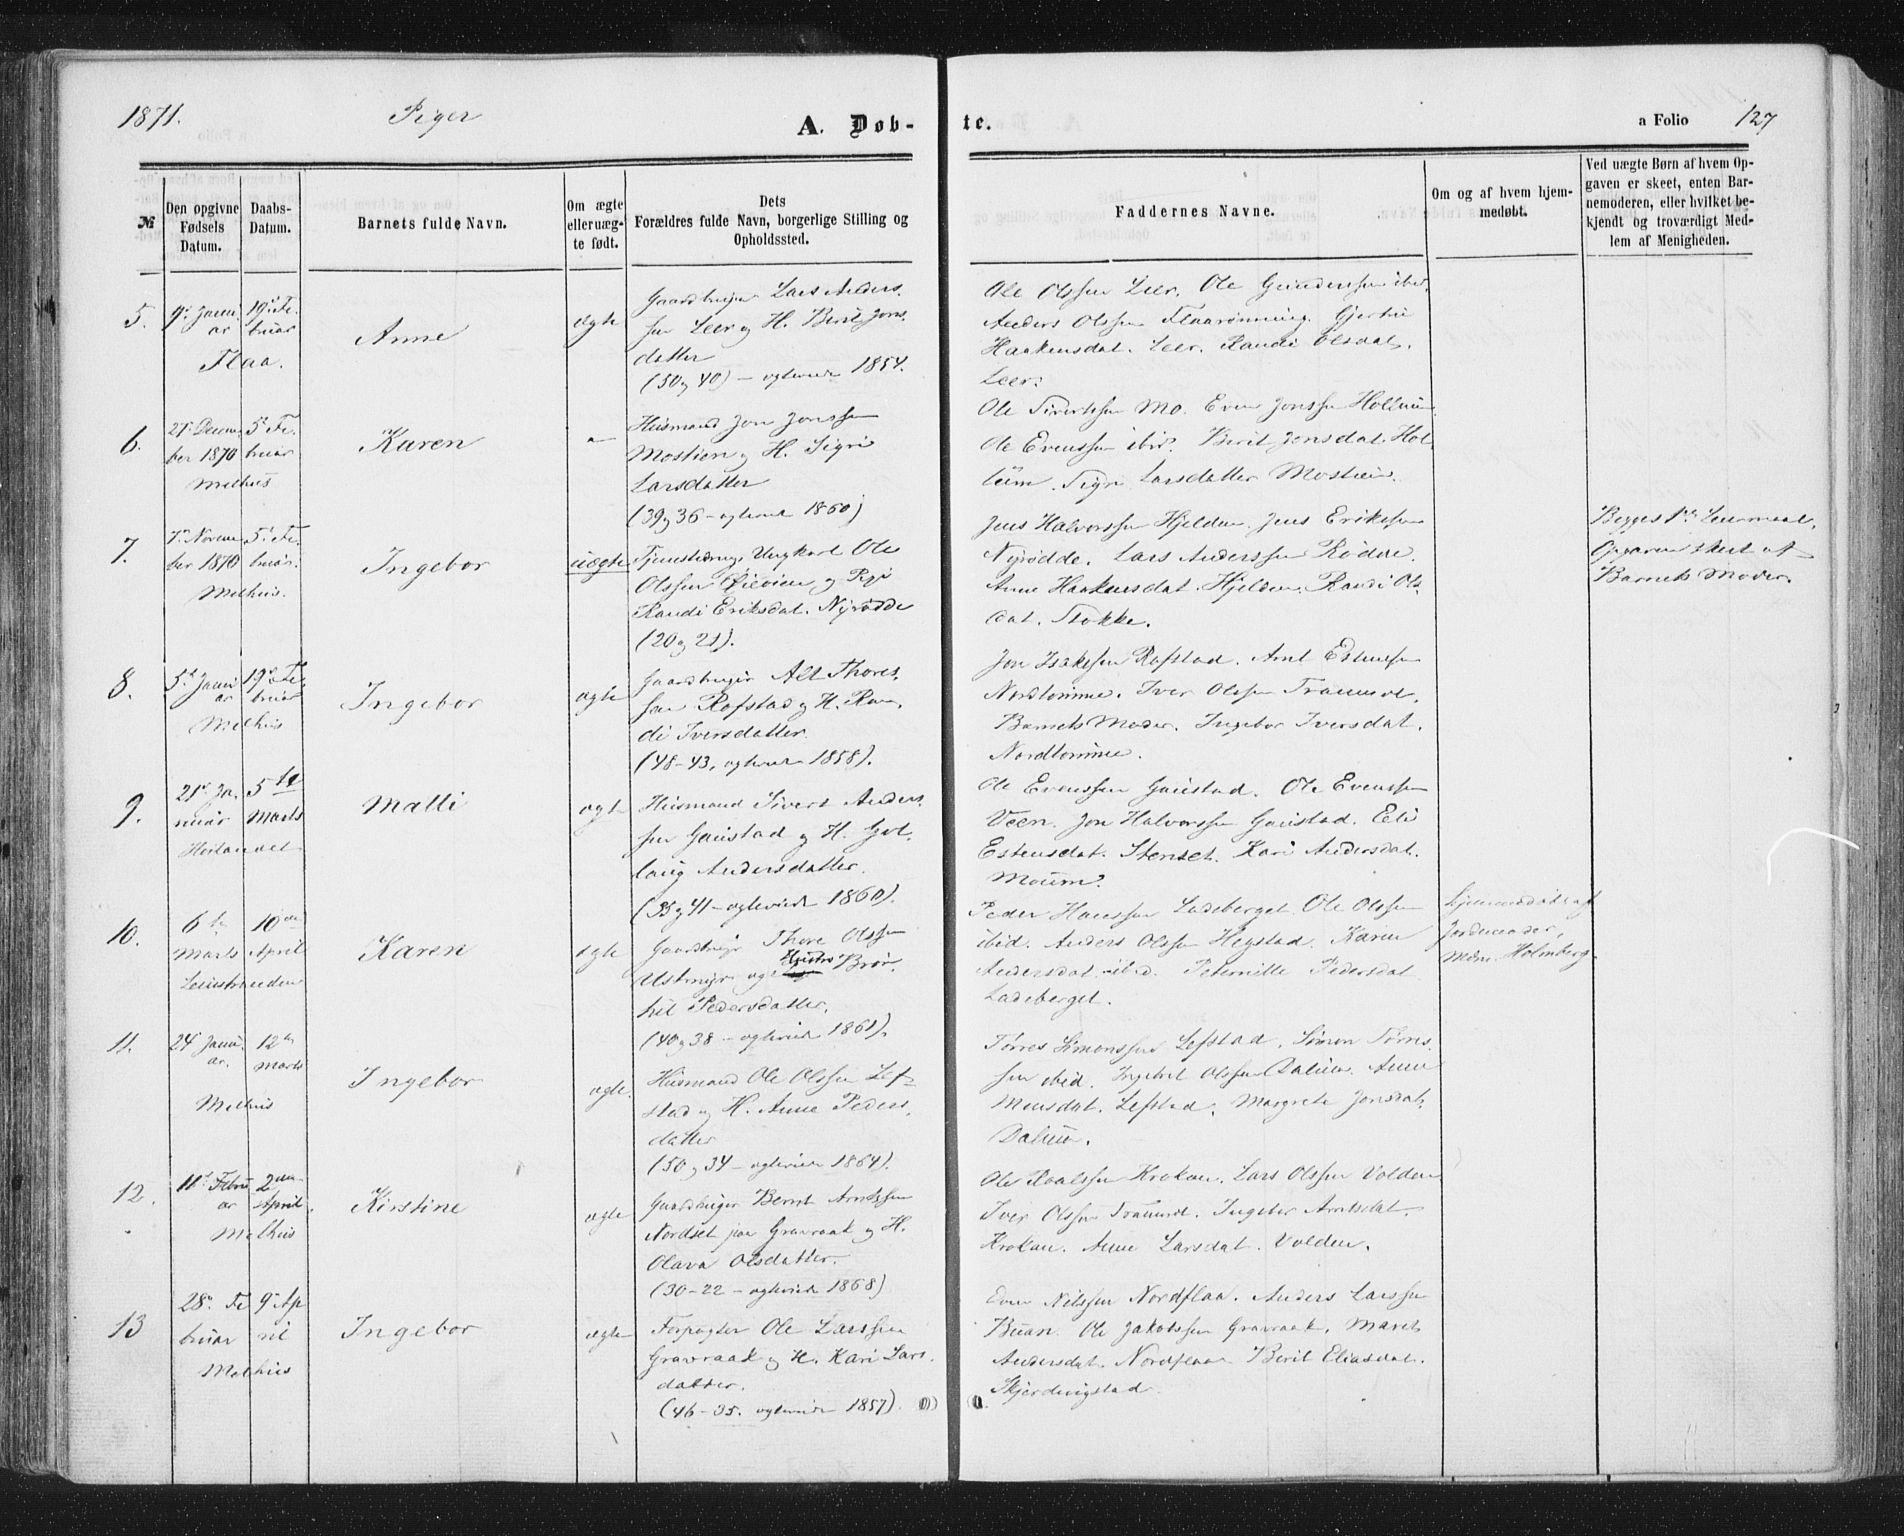 1871. Piger A. Døb-
te. a Folio 127
№
Den opgivne
Fødsels
Datum.
Daabs-
Datum.
Barnets fulde Navn.
Om ægte
eller uæg-
te født.
Dets
Forældres fulde Navn, borgerlige Stilling og
Opholdssted.
Faddernes Navne.
Om og af hvem hjem-
medøbt.
Ved uægte Børn af hvem Op-
gaven er skeet, enten Bar-
nemoderen, eller hvilket be-
kjendt og troværdigt Med-
lem af Menigheden.
5.
9de Janu
ar
Flaa.
19de Fe.
bruar
Anne
ægte
Gaardbruger Lars Anders.
sen Leer og H. Berit Jons.
datter
(50 og 40) – egteviede 1854.
Ole Olssen Leer. Ole Gundersen ibid.
Anders Olssen Flaarønning. Gjertru
Haakensdat. Leer. Randi Olsdat.
Leer.
6.
21de Decem
ber 1870
Melhus
5te Fe.
bruar
Karen
–
Husmand Jon Jonssen
Mostien og H. Sigri
Larsdatter
(39 og 36 – egteviede 1860)
Ole Sivertssen Mo. Even Jonssen Hollum
Ole Evenssen ibid. Berit Jonsdat. Hol
lum. Sigri Larsdatter Mostien.
7.
7de Novem
ber 1870
Melhus.
5te Fe.
bruar.
Ingebor
uægte
Tjenestedreng Ungkarl Ole
Olssen Øieøien og Pige
Randi Eriksdat. Nyrødde
(20 og 21).
Jens Halvorssen Hjelden. Jens Erikssen
Nyrødde. Lars Anderssen Rødde.
Anne Haakensdat. Hjelden. Randi Ols
dat. Stokke.
Begges 1ste Leiermaal.
Opgaven skeet af
Barnets Moder.
8.
5te Janu
ar
Melhus
19de Fe.
bruar
Ingebor
ægte
Gaardbruger Alt Thores.
sen Rofstad og H. Ran,
di Iversdatter.
(48-43, egteviede 1858).
Jon Isakssen Rofstad. Arnt Estenssen
Nordtømme. Iver Olssen Tranmæl.
Barnets Moder. Ingebor Iversdat.
Nordtømme.
9.
21de Ja.
nuar
Hørlandet
5te
Marts
Malli
ægte
Husmand Sivert Anders.
sen Gaustad og H. Gol
laug Andersdatter.
(35 og 41 – egteviede 1860).
Ole Evenssen Gaustad. Ole Evenssen
Veen. Jon Halvorssen Gaustad. Eli
Estensdat. Stenset. Kari Andersdat.
Moum.
10.
6te
Marts
Leinstranden
10de
April
Karen
ægte
Gaardbruger Thore Olssen
Ustmyr og Hustru Brør
hit Pedersdatter.
(40 og 38 – egteviede 1861).
Peder Hanssen Ladeberget. Ole Olssen
ibid. Anders Olssen Hegstad. Karen
Andersdat. ibid. Peternille Pedersdat
Ladeberget.
hjemmedøbt af
Jordemoder,
Holmberg.
11.
24de Janu.
ar.
Melhus
12te
Marts
Ingebor
ægte.
Husmand Ole Olssen Lef-
stad og H. Anne Peders,
datter
(50 og 34 – egteviede 1864).
Tørres Simonssen Lefstad. Simon Tørres
sen ibid. Ingebrit Olssen Dalum. Anne
Monsdat. Lefstad. Margrete Jonsdat.
Dalum.
12.
11te Febru
ar
Melhus
2den
April.
Kirstine
ægte
Gaardbruger Bernt Arntssen
Nordset paa Gravraak og H.
Olava Olsdatter.
(30-22 – egteviede 1868)
Ole Roalssen Krokan. Lars Olssen Volden
Iver Olssen Tranmæl. Ingebor Arntsdat.
Krokan. Anne Larsdat. Volden.
13
28de Fe
bruar
Melhus
9de Ap
ril
Ingebor
ægte
Forpagter Ole Larssen
Gravraak og H. Kari Lars.
datter.
(46-35. egteviede 1857).
Even Nilssen Nordflaa. Anders Larssen
Buan. Ole Jakobssen Gravraak. Maret
Andersdat. Nordflaa Berit Eliasdat.
Skjerdingstad.